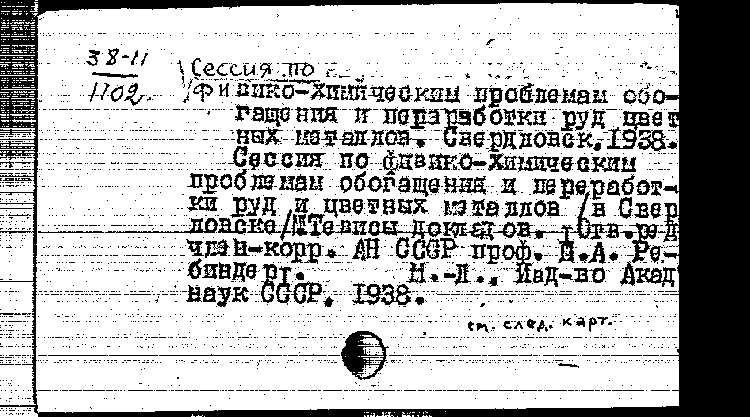 38-11
1102.
Сессия по
физико-химическим проблемам обо-
гащения и переработки руд цвет
ных металлов. Свердловск. 1938.
Сессия по физико-химическим
проблемам обогащения и переработ-
ки руд и цветных металлов /в Свер
ловске/ Тезисы докладов. Отв.ред
член-корр. АН СССР проф. П.А. Ре-
биндер. М.-Л., Изд-во Акад
наук СССР. 1938.
см. след. карт.